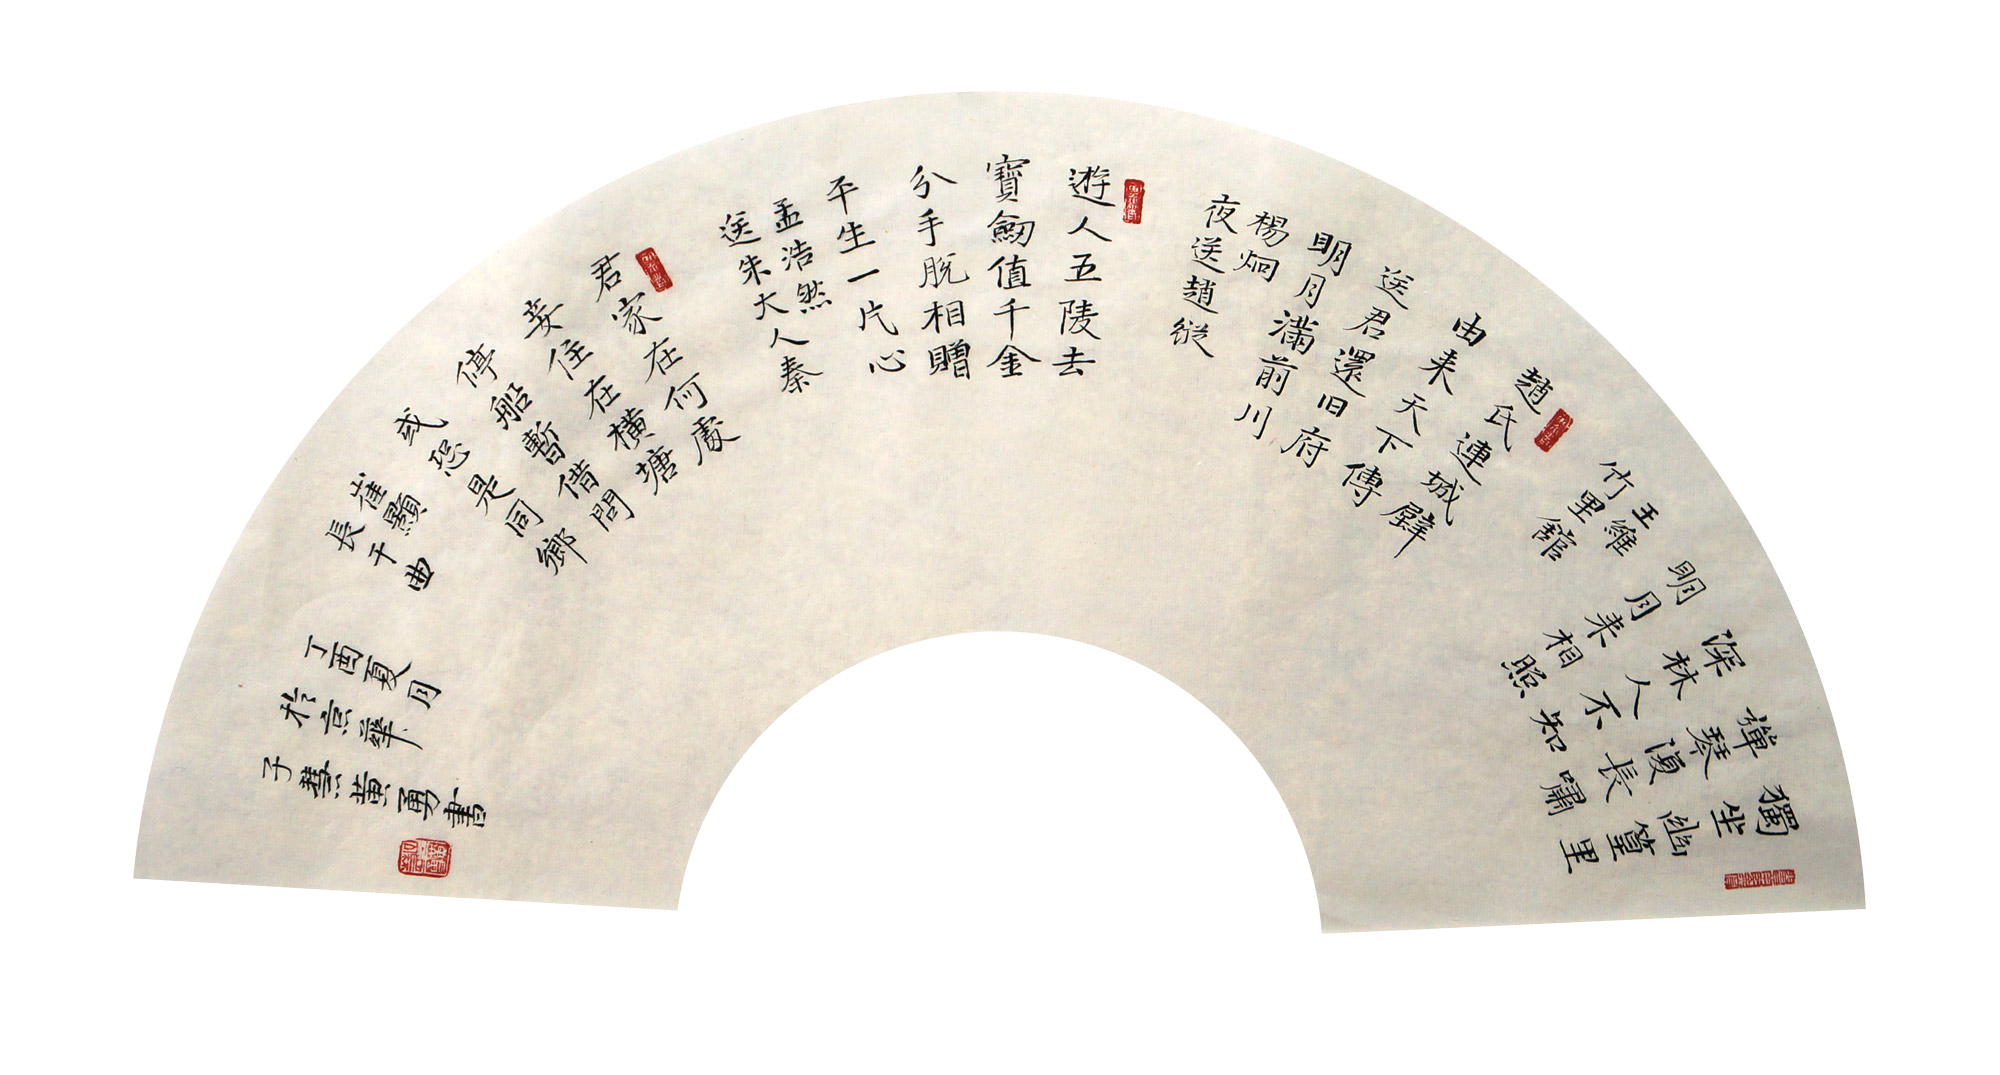 獨坐幽篁里
彈琴復長嘯
深林人不知
明月来相照
王維
竹里館
趙氏連城壁
由来天下傳
送君還旧府
明月滿前川
楊炯
夜送趙縱
遊人五陵去
寶劒值千金
分手脫相贈
平生一片心
孟浩然
送朱大人秦
君家在何處
妾住在橫塘
停船暫借問
或恐是同鄉
崔顥
長干曲
丁酉夏月
於京華
子慧黃勇書